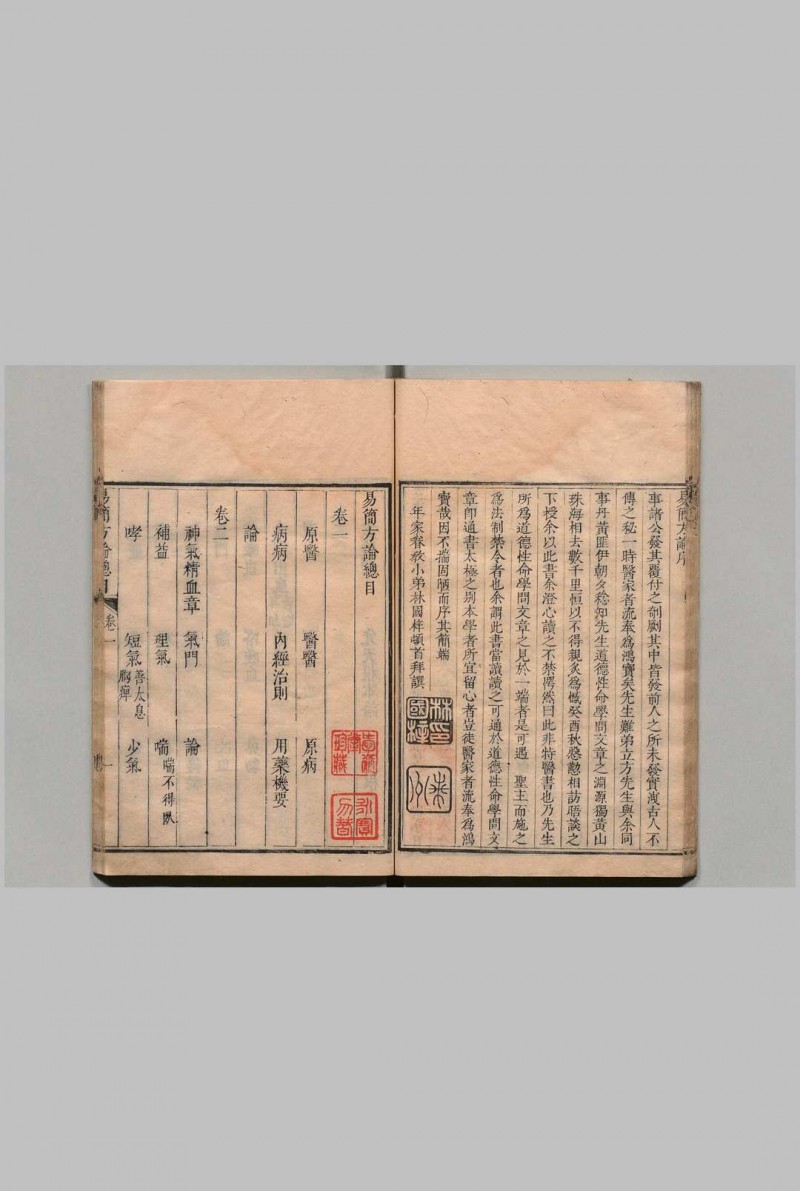 易簡方論序
事諸公發其覆付之剞劂其中皆發前人之所未發實洩古人不
傳之秘一時醫家者流奉為鴻寶矣先生難弟立方先生與余同
事丹黃匪伊朝夕稔知先生道德性命學問文章之淵源獨黃山
珠海相去數千里恒以不得親炙為慨癸酉秋慇懃相訪晤談之
下授余以此書余澄心讀之不禁愕然曰此非特醫書也乃先生
所為道德性命學問文章之見於一端者是可遇　聖主而施之
為法制禁令者也余謂此書當讀讀之可通於道德性命學問文
章即通書太極之別本學者所宜留心者豈徒醫家者流奉為鴻
寶哉因不揣固陋而序其簡端
年家眷教小弟林國柱頓首拜譔
易簡方論總目
卷一
原醫　醫醫　原病
病病　內經治則　用藥機要
論
卷二
神氣精血章　氣門　論
補益　理氣　喘喘不得臥
哮　短氣善太息胸痺　少氣
易簡方論總目　卷一　一